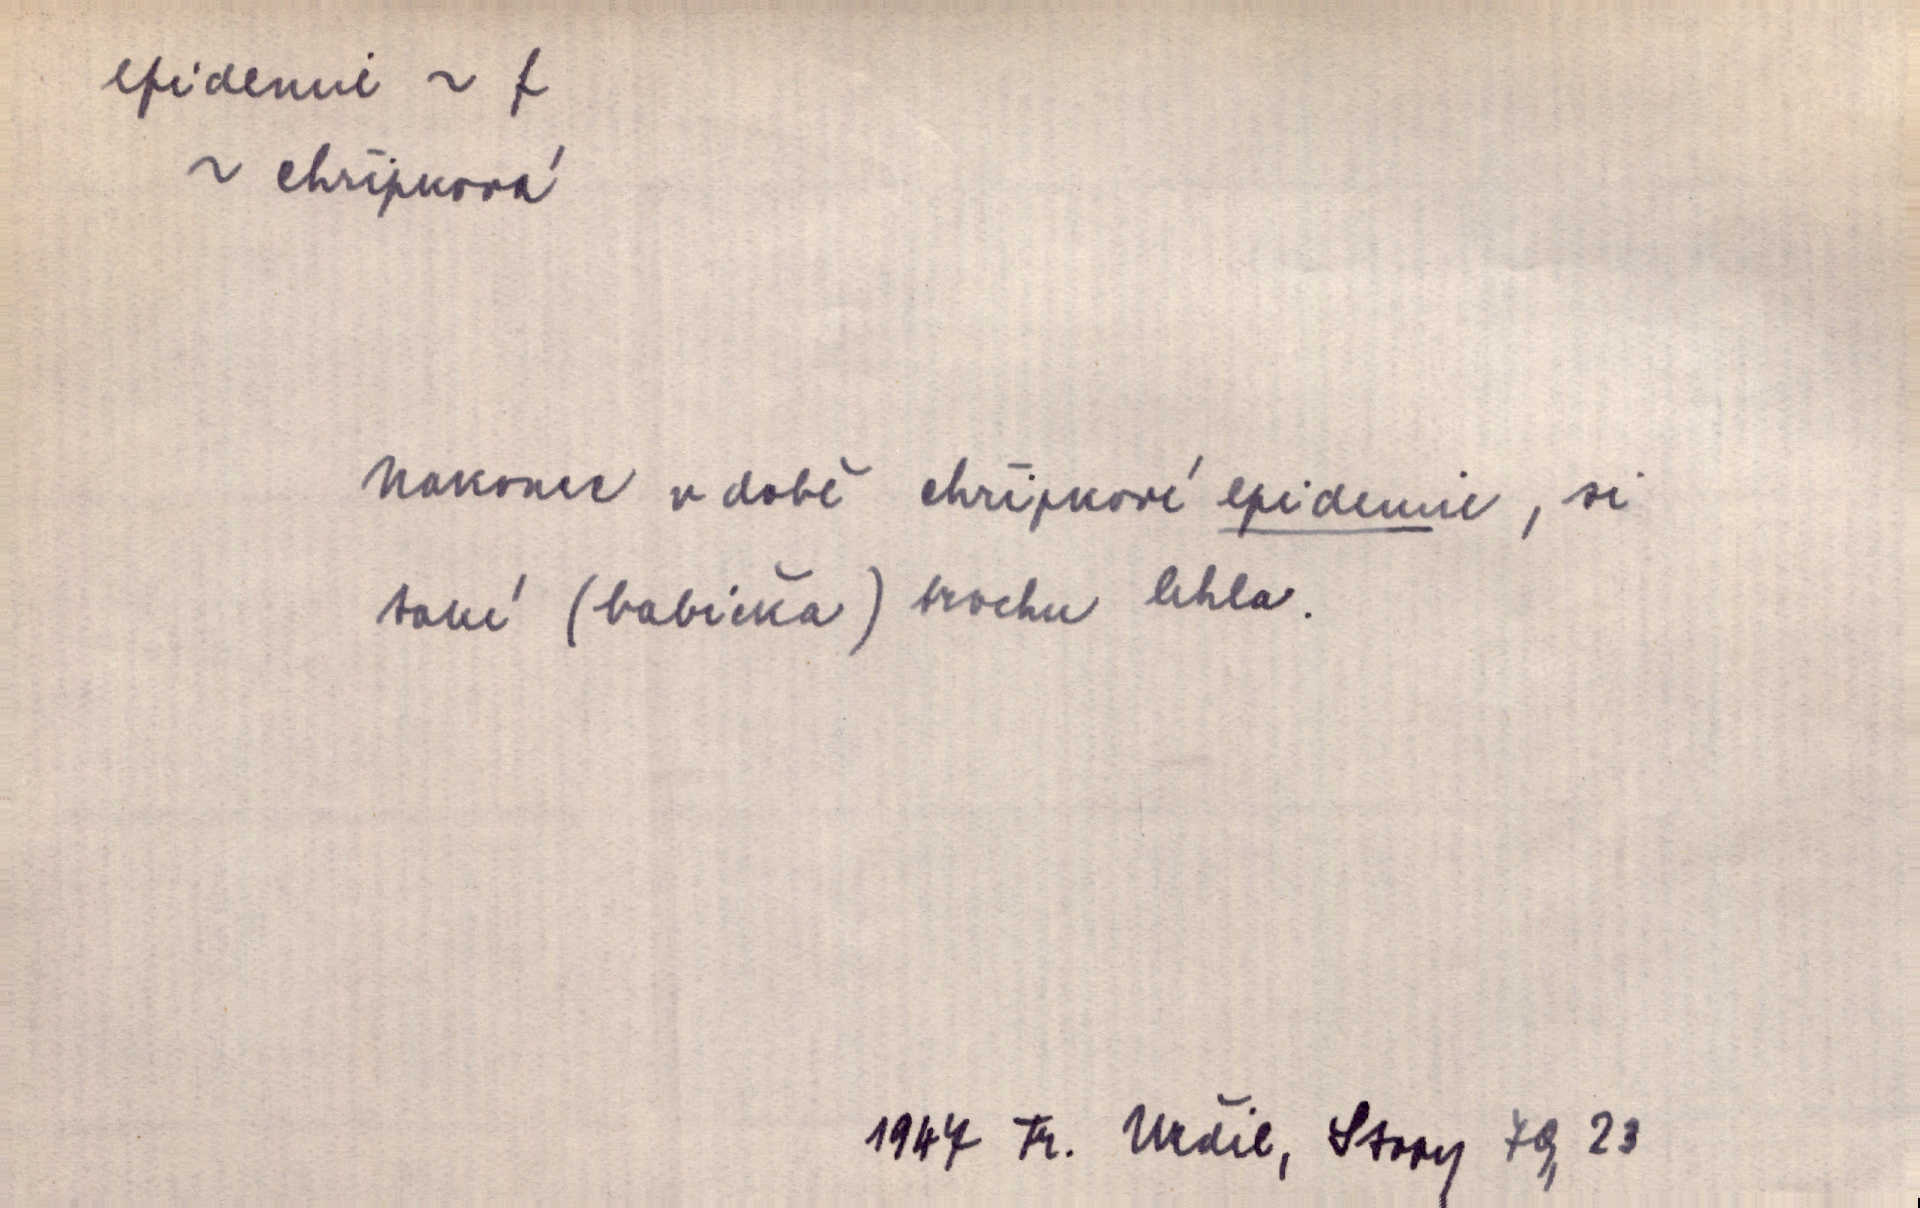 epidemie ~ f
~ chřipková
Nakonec v době chřipkové epidemie, si
také (babička) trochu lehla.
1947 Fr. Story 23